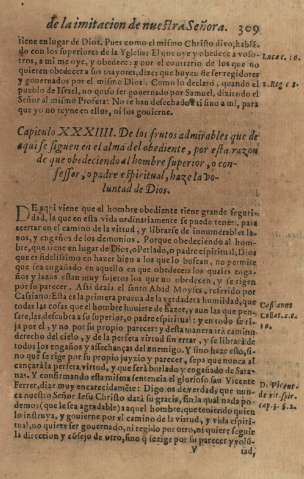 de la imitacion de nuestra Señora. 309
tiene en lugar de Dios. Pues como el mismo Christo dixo, hablã-
do con los superiores de la Yglesia: El que oye y obedece a voso-
tros, a mi me oye, y obedece: y por el contrario de los que no Lucæ. 10.
quieren obedecer a sus mayores, dize; que huyen de ser regidos
y gouernados por el mismo Dios. Como lo declarò, quando el 1. Reg. 8
pueblo de Israel, no quiso ser gouernado por Samuel, diziendo el
Señor al mismo Profeta: No te han desechado a ti sino a mi, para
que yo no reyne en ellos, ni los gouierne.
Capitulo XXXIIII. De los frutos admirables que de
aqui se siguen en el alma del obediente, por esta razon
de que obedeciendo al hombre superior, o con-
fessor, o padre espiritual, haze la vo-
luntad de Dios.
DE aqui viene que el hombre obediente tiene grande seguri-
dad, la que en esta vida ordinariamente se puede tener, para
acertar en el camino de la virtud, y librarse de innumerables la-
zos, y engaños de los demonios. Porque obedeciendo al hom-
bre, que tiene en lugar de Dios, o Perlado, o padre espiritual, Dios
que es fidelissimo en hazer bien a los que lo buscan, no permite
que sea engañado en aquello en que obedece: en los quales enga-
ños y lazos estan muy sujetos los que no obedecen, y se rigen
por su parecer. Assi dezia el santo Abad Moyses, referido por
Cassiano: Esta es la primera prueua de la verdadera humildad, que
todas las cosas que el hombre huuiere de hazer, y aun las que pen- Cassianus
sare, las descubra a su superior, o padre espiritual: y en todo se ri- Collat. 2. c.
ja por el, y no por su propio parecer: y desta manera irà camino 10.
derecho del cielo, y de la perfeta virtud sin errar, y se librarà de
todos los engaños y assechanças del enemigo. Y sino haze esto, si-
no que se rige por su propio juyzio y parecer, sepa que nunca al
cançarà la perfeta virtud, y que serà burlado y engañado de Sata-
nas. Y confirmando esta misma sentencia el glorioso san Vicente
Ferrer, dize muy encarecidamẽte: Digo en de verdad, que nun- D. Vicent.
ca nuestro Señor Iesu Christo darà su gracia, sin la qual nada po- de vit. spir.
demos (que le sea agradable) a aquel hombre, que teniendo quien cap. 5. §. 2.
lo instruya, y gouierne por el camino de la virtud, y vida espiri-
tual, no quiere ser gouernado, ni regido por otro, ni quiere seguir
la direccion y cõsejo de otro, sino q̃ se rige por su parecer y volũ-
V tad,